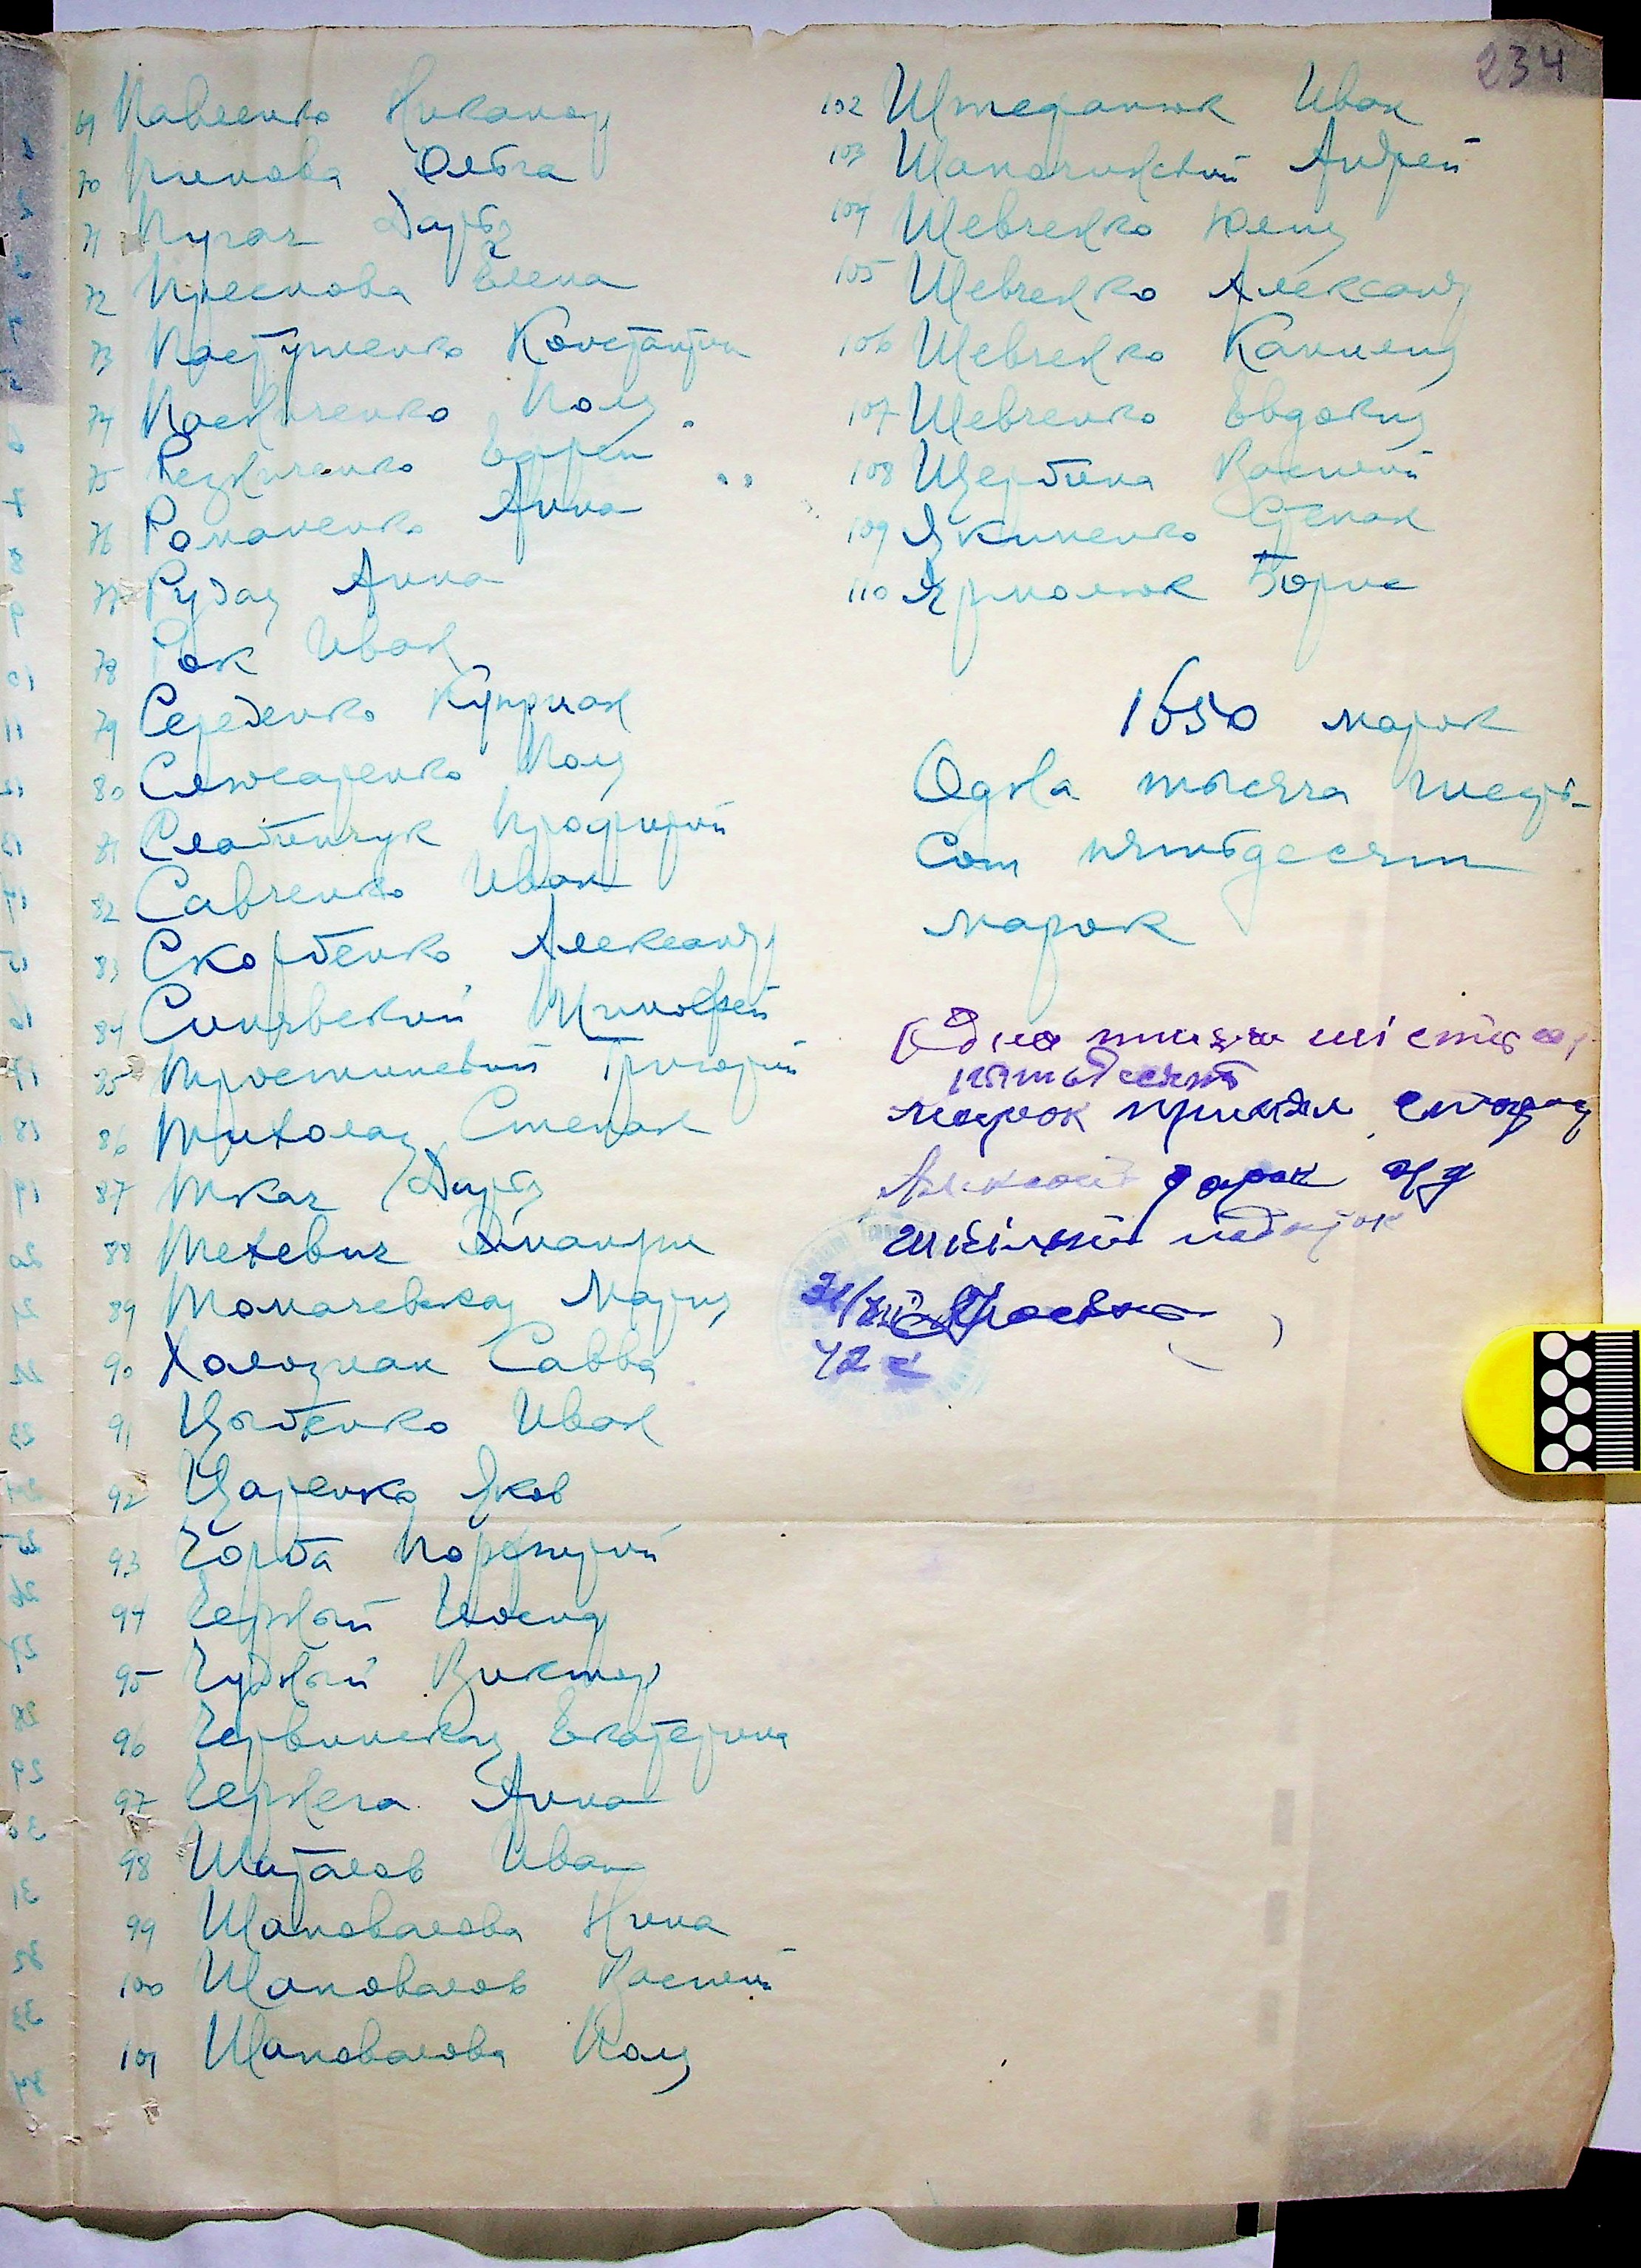 234
69 Павленко Никанор
70 Пинова Ольга
71 Пугач Дарья
72 Преснова Елена
73 Пастушенко Константин
74 Пасниченко Поля
75 Резниченко Ефрем
76 Романенко Анна
77 Рудая Анна
78 Рак Иван
79 Середенко Куприан
80 Слюсаренко Поля
81 Слободенчук Продирий
82 Савченко Иван
83 Скорбенко Александр
84 Синявский Тимофей
85 Тростинский Григорий
86 Тихолаз Степан
87 Ткач Дарья
88 Техевич Дмитрий
89 Томачевская Мария
90 Холозман Савва
91 Цыбенко Иван
92 Царенко Яков
93 Чорба Порфирий
94 Черный Иосиф
95 Чудный Виктор
96 Червинская Екатерина
97 Чернега Анна
98 Шаталов Иван
99 Шаповалова Нина
100 Шаповалов Василий
101 Шаповалова Поля
102 Штефанюк Иван
103 Шапочинский Андрей
104 Шевченко Юлия
105 Шевченко Александр
106 Шевченко Камилия
107 Шевченко Евдокия
108 Щербина Василий
109 Якименко Степан
110 Ярмолюк Борис
1650 марок
Одна тысяча шесть-
сот пятьдесят
марок
Одна тисяча шістьсот
пятьдесят
марок прийняв
шкільний податок
42